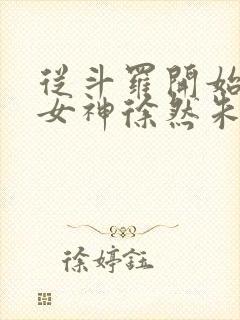 從斗羅開始
女神徐然朱
徐婷鈺